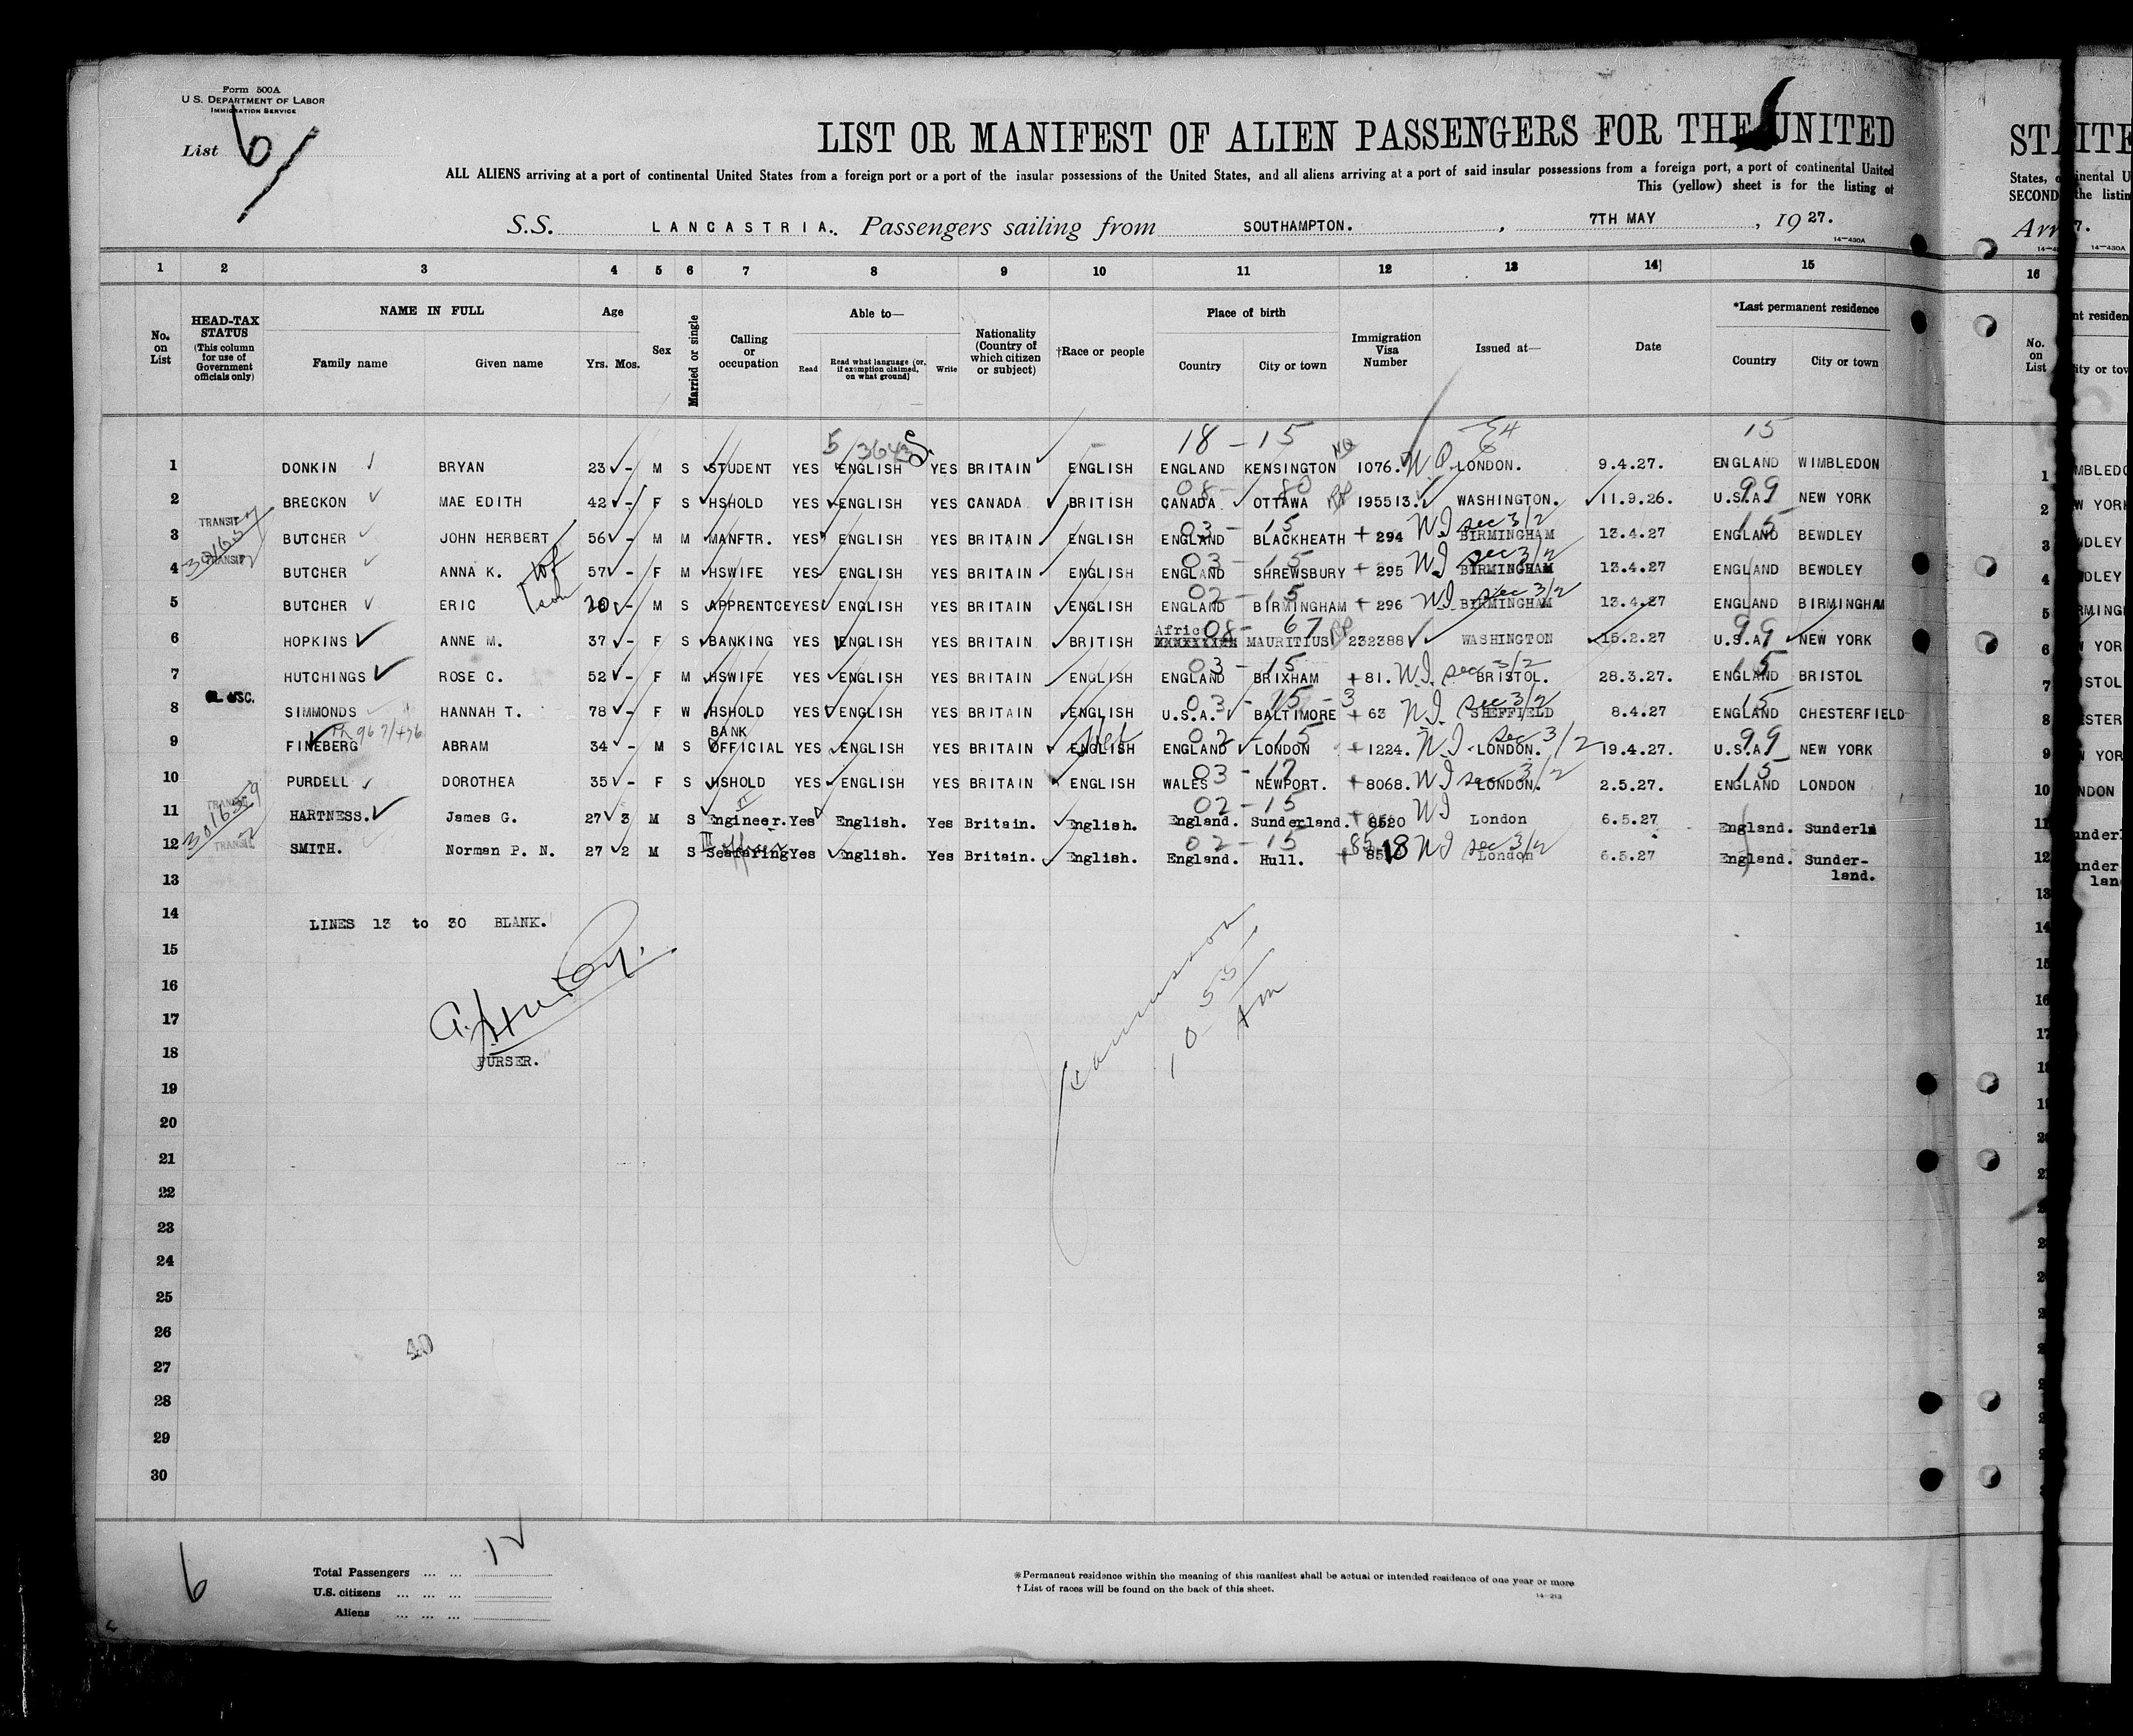 Form 500A
U. S. DEPARTMENT OF LABOR
IMMIGRATION SERVICE
List 6
LIST OR MANIFEST OF ALIEN PASSENGERS FOR THE UNITED
ALL ALIENS arriving at a port of continental United States from a foreign port or a port of the insular possessions of the United States, and all aliens arriving at a port of said insular possessions from a foreign port, a port of continental United
This (yellow) sheet is for the listing of
S.S. LANCASTRIA. Passengers sailing from SOUTHAMPTON. , 7TH MAY , 19 27.
14—430A
1 2 3 4 5 6 7 8 9 10 11 12 13 14 15
No. on List
HEAD-TAX STATUS (This column for use of Government officials only)
NAME IN FULL
Family name Given name
Age
Yrs. Mos.
Sex
Married or single
Calling or occupation
Able to—
Read
Read what language [or, if exemption claimed, on what ground]
Write
Nationality (Country of which citizen or subject)
†Race or people
Place of birth
Country City or town
Immigration Visa Number
Issued at—
Date
*Last permanent residence
Country City or town
18 - 15 15
5/3643
1 DONKIN BRYAN 23 - M S STUDENT YES ENGLISH YES BRITAIN ENGLISH ENGLAND KENSINGTON 1076. LONDON. 9.4.27. ENGLAND WIMBLEDON
08 - 80 99
2 BRECKON MAE EDITH 42 - F S HSHOLD YES ENGLISH YES CANADA BRITISH CANADA OTTAWA 195513. WASHINGTON. 11.9.26. U.S.A. NEW YORK
TRANSIT
03 - 15 NI sec 3/2 15
3 BUTCHER JOHN HERBERT 56 - M M MANFTR. YES ENGLISH YES BRITAIN ENGLISH ENGLAND BLACKHEATH + 294 BIRMINGHAM 13.4.27 ENGLAND BEWDLEY
TRANSIT
03 - 15 NI sec 3/2
4 BUTCHER ANNA K. wf 57 - F M HSWIFE YES ENGLISH YES BRITAIN ENGLISH ENGLAND SHREWSBURY + 295 BIRMINGHAM 13.4.27 ENGLAND BEWDLEY
02 - 15 NI sec 3/2
5 BUTCHER ERIC son 20 - M S APPRENTCE YES ENGLISH YES BRITAIN ENGLISH ENGLAND BIRMINGHAM + 296 BIRMINGHAM 13.4.27 ENGLAND BIRMINGHAM
Afric 08 - 67 99
6 HOPKINS ANNE M. 37 - F S BANKING YES ENGLISH YES BRITAIN BRITISH MAURITIUS 232388 WASHINGTON 15.2.27 U.S.A. NEW YORK
03 - 15 NI sec 3/2 15
7 HUTCHINGS ROSE C. 52 - F M HSWIFE YES ENGLISH YES BRITAIN ENGLISH ENGLAND BRIXHAM +81. BRISTOL. 28.3.27. ENGLAND BRISTOL
03 - 15 - 3 NI sec 3/2 15
8 SIMMONDS HANNAH T. 78 - F W HSHOLD YES ENGLISH YES BRITAIN ENGLISH U.S.A. BALTIMORE + 63 SHEFFIELD 8.4.27 ENGLAND CHESTERFIELD
02 - 15 NI sec 3/2 99
9 FINEBERG ABRAM 34 - M S BANK OFFICIAL YES ENGLISH YES BRITAIN ENGLISH ENGLAND LONDON +1224. LONDON. 19.4.27. U.S.A. NEW YORK
03 - 17 NI sec 3/2 15
10 PURDELL DOROTHEA 35 - F S HSHOLD YES ENGLISH YES BRITAIN ENGLISH WALES NEWPORT. +8068. LONDON. 2.5.27. ENGLAND LONDON
TRANSIT
02 - 15 NI
11 HARTNESS. James G. 27 3 M S Engineer. Yes English. Yes Britain. English. England. Sunderland. + 8520 London 6.5.27 England. Sunderla
TRANSIT
02 - 15 NI sec 3/2
12 SMITH. Norman P. N. 27 2 M S Seafaring Yes English. Yes Britain. English. England. Hull. + 8518 London 6.5.27 England. Sunder-
land.
13
14 LINES 13 to 30 BLANK.
15
16
17
18 PURSER.
10 53 Am
19
20
21
22
23
24
25
26
40
27
28
29
30
6
12
Total Passengers
U.S. citizens
Aliens
*Permanent residence within the meaning of this manifest shall be actual or intended residence of one year or more
† List of races will be found on the back of this sheet.
14—213